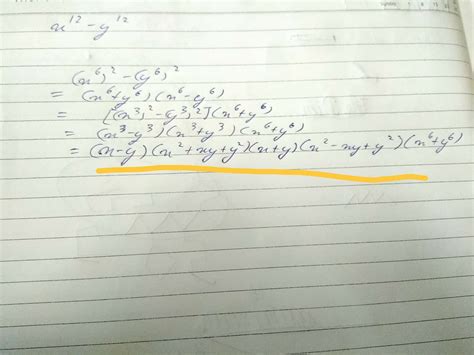 x¹² - y¹²
(x⁶)² - (y⁶)²
= (x⁶+y⁶)(x⁶-y⁶)
= [(x³)² - (y³)²](x⁶+y⁶)
= (x³-y³)(x³+y³)(x⁶+y⁶)
= (x-y)(x²+xy+y²)(x+y)(x²-xy+y²)(x⁶+y⁶)